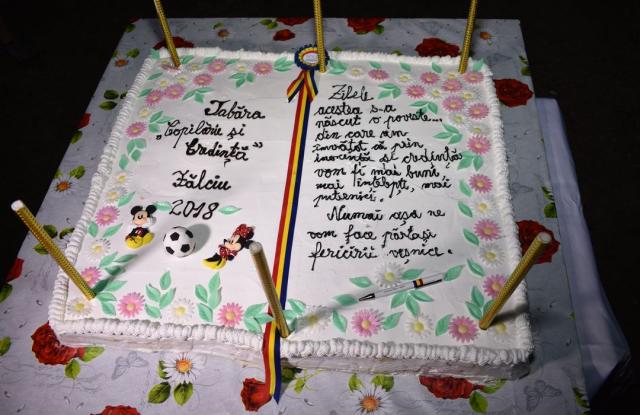 Tabăra
„Copilărie și
Credință”
Zălciu
2018
Zilele
acestea s-a
născut o poveste...
din care am
învățat că prin
inocență și credință
vom fi mai buni,
mai înțelepți, mai
puternici.
Numai așa ne
vom face părtași
fericirii veșnice.